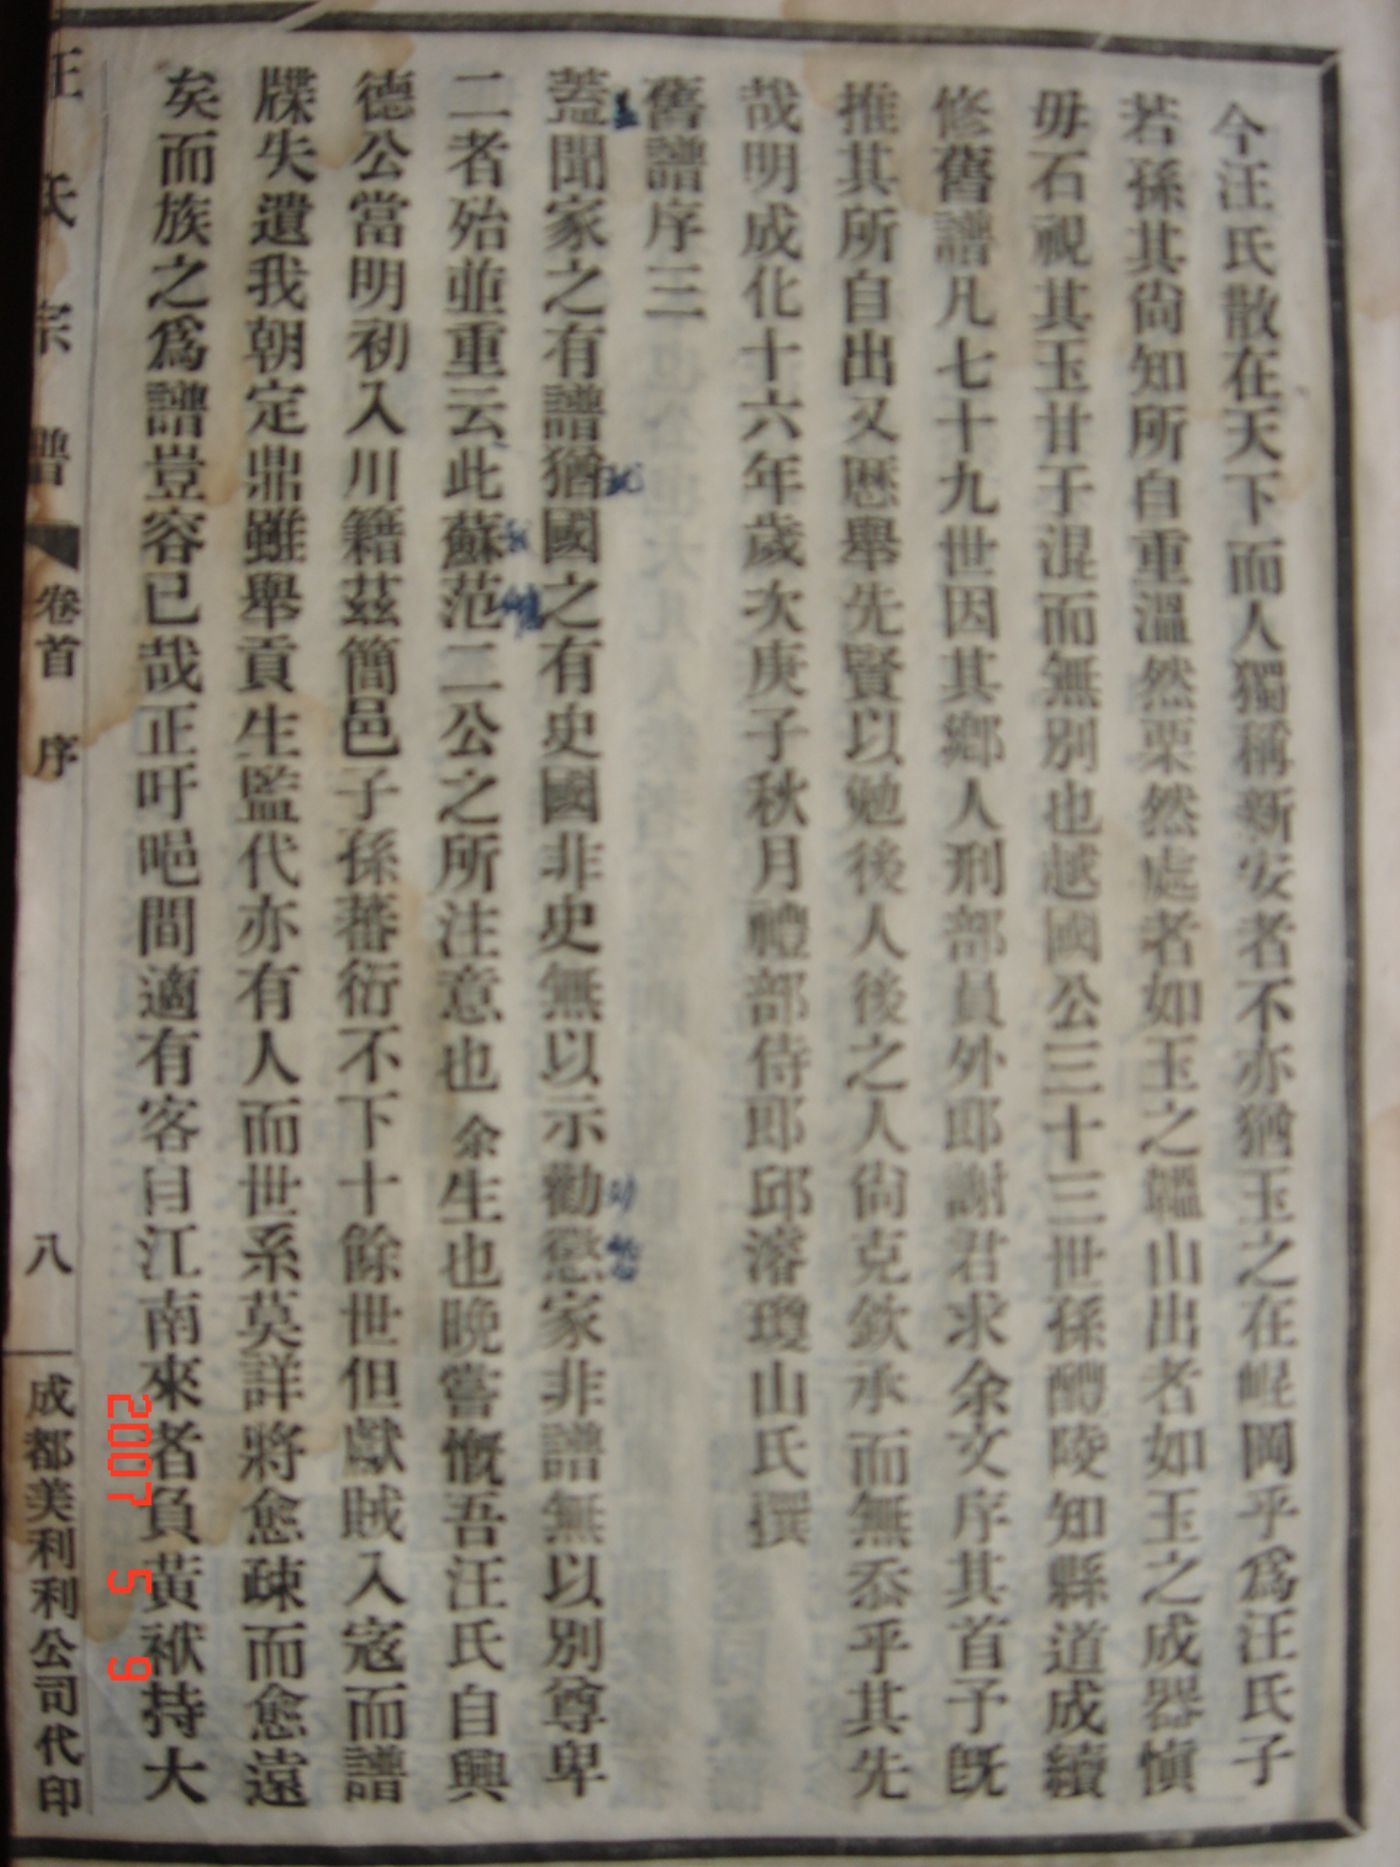 今汪氏散在天下而人獨稱新安者不亦猶玉之在崐岡乎爲汪氏子
若孫其尙知所自重溫然栗然處者如玉之韞山出者如玉之成器愼
毋石視其玉甘于混而無別也越國公三十三世孫醴陵知縣道成續
修舊譜凡七十九世因其鄕人刑部員外郎謝君求余文序其首予旣
推其所自出又歷舉先賢以勉後人後之人尙克欽承而無忝乎其先
哉明成化十六年歲次庚子秋月禮部侍郎邱濬瓊山氏撰
舊譜序三
蓋聞家之有譜猶國之有史國非史無以示勸懲家非譜無以別尊卑
二者殆並重云此蘇范二公之所注意也余生也晚嘗慨吾汪氏自興
德公當明初入川籍茲簡邑子孫蕃衍不下十餘世但獻賊入寇而譜
牒失遺我朝定鼎雖舉貢生監代亦有人而世系莫詳將愈疎而愈遠
矣而族之爲譜豈容已哉正吁唈間適有客自江南來者負黃袱持大
汪氏宗譜 卷首 序 八 成都美利利公司代印
2007 5 9